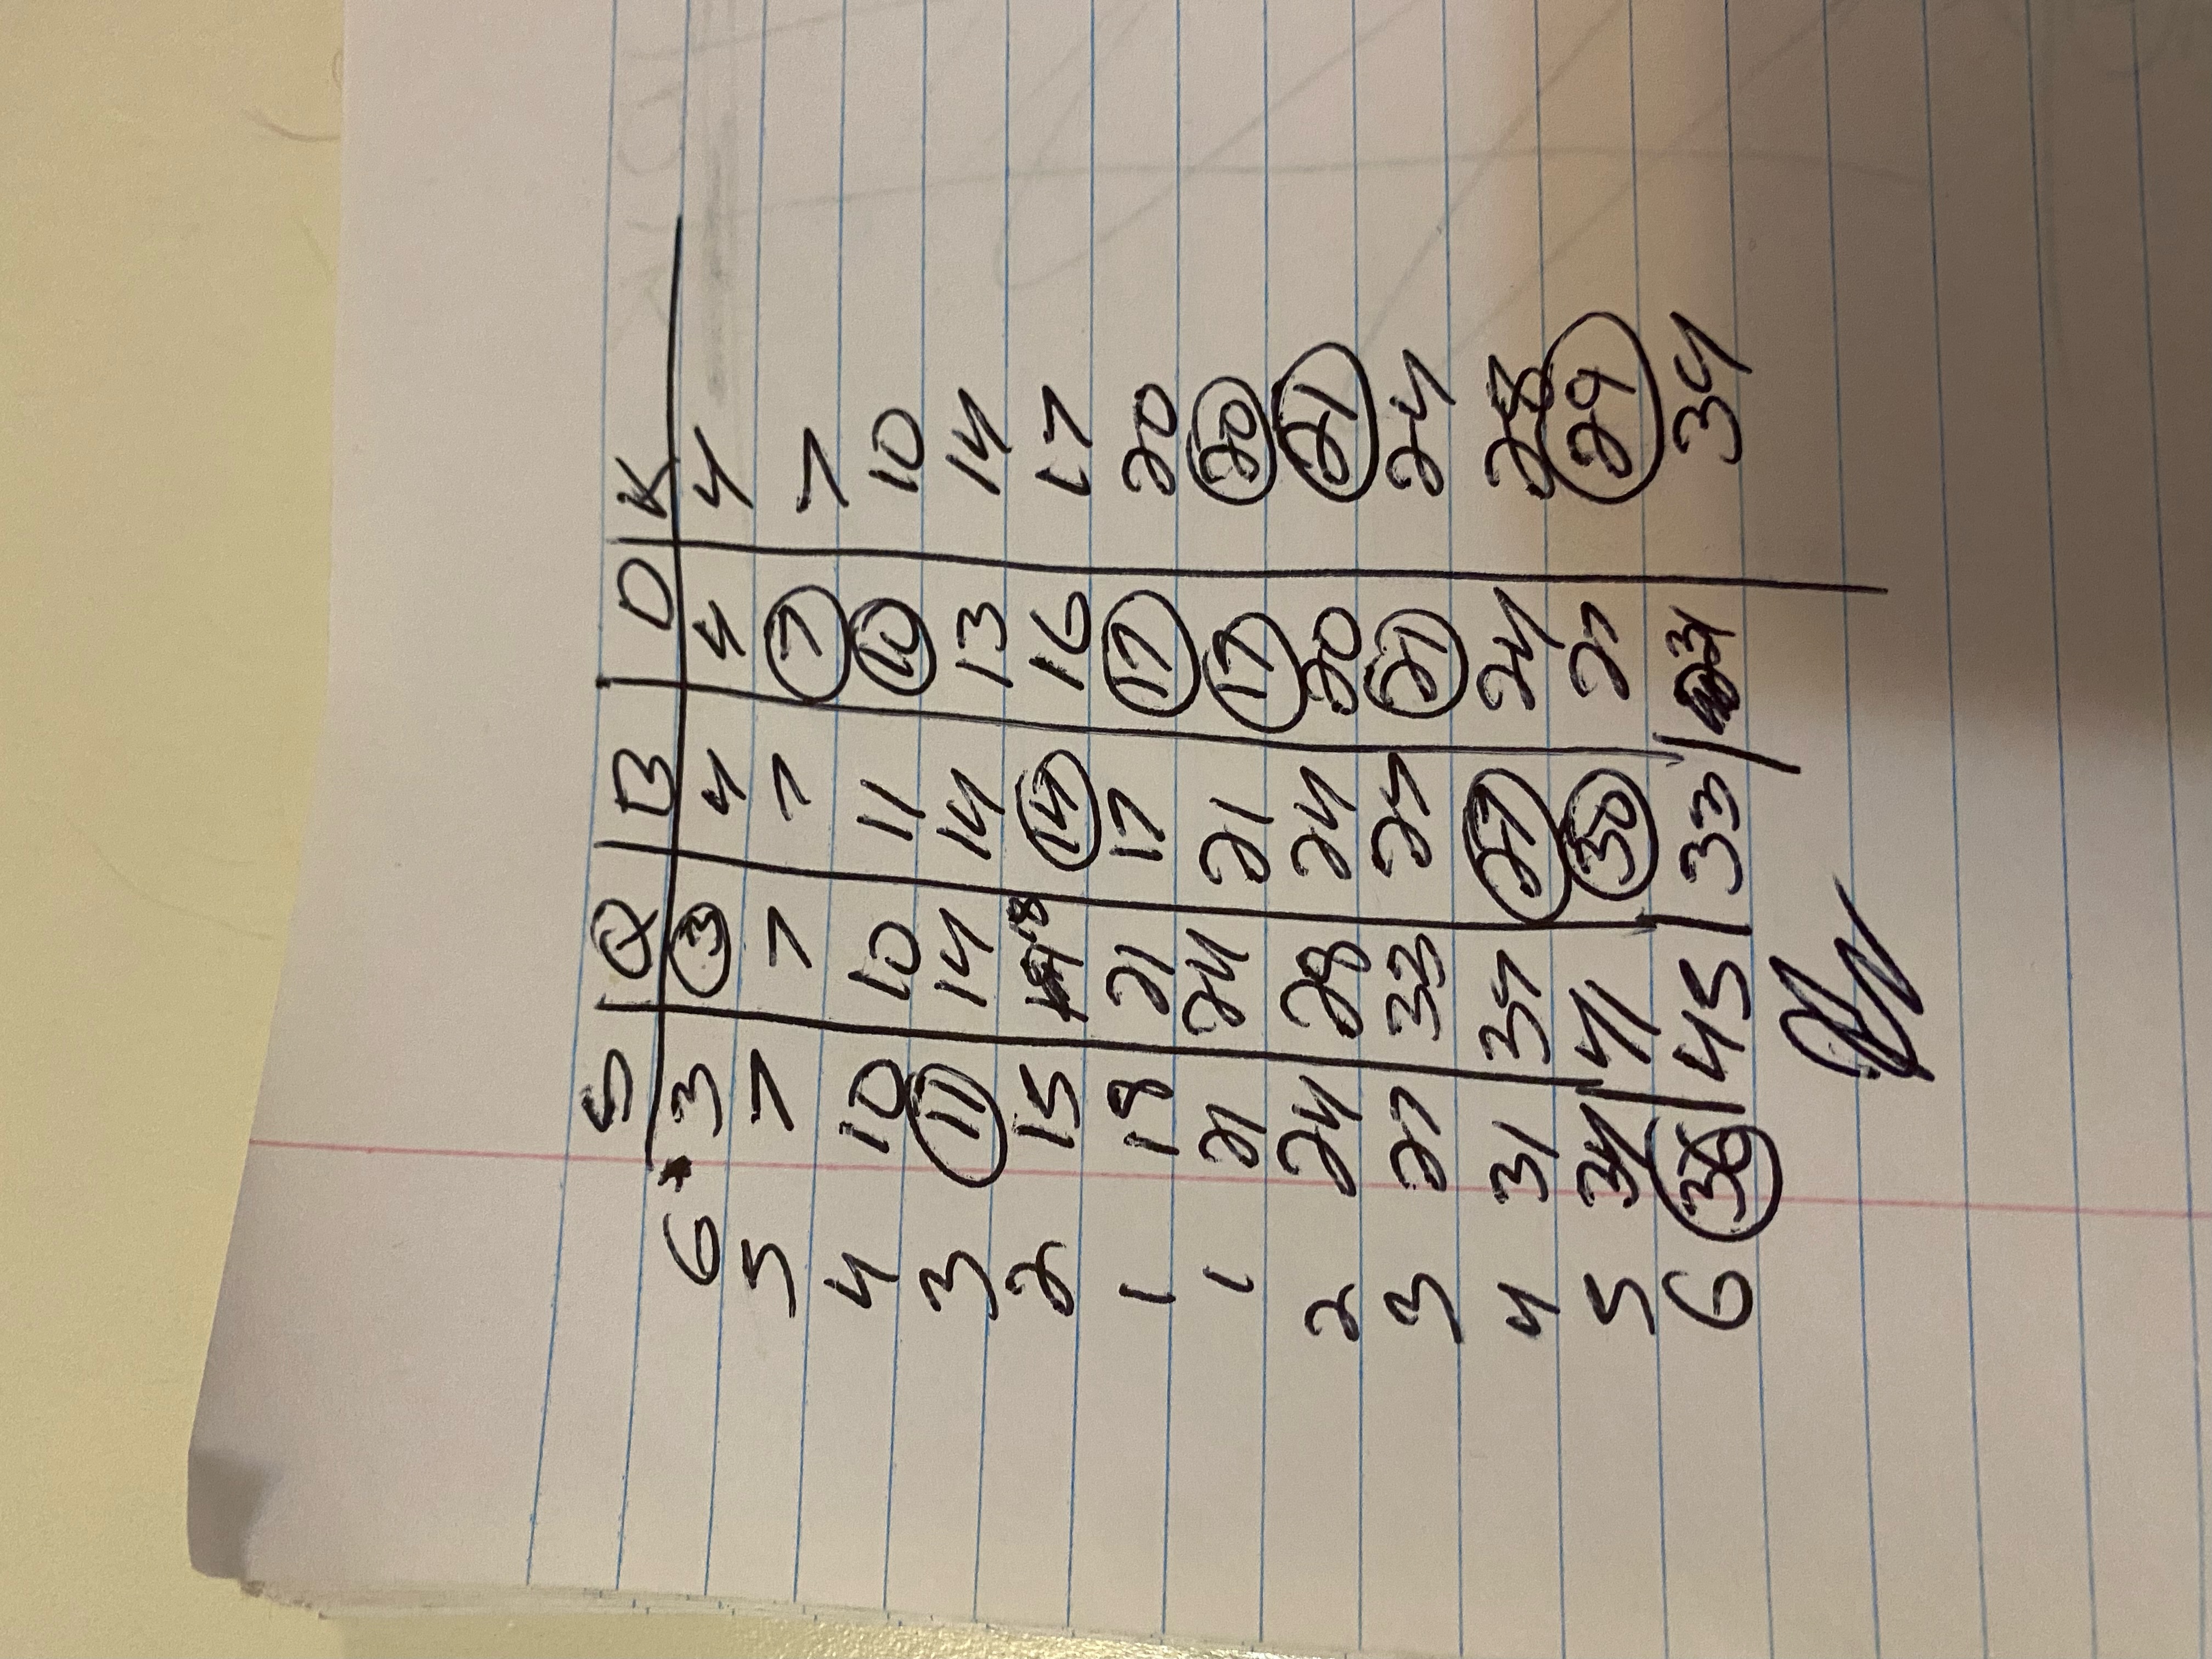 S Q B D K
6 3 3 4 4 4
5 7 7 7 7 7
4 10 10 11 10 10
3 11 14 14 13 14
2 15 18 14 16 17
1 18 21 17 17 20
1 21 24 21 17 20
2 24 28 24 20 21
3 27 33 27 21 24
4 31 37 27 24 28
5 34 41 30 27 29
6 36 45 33 31 34